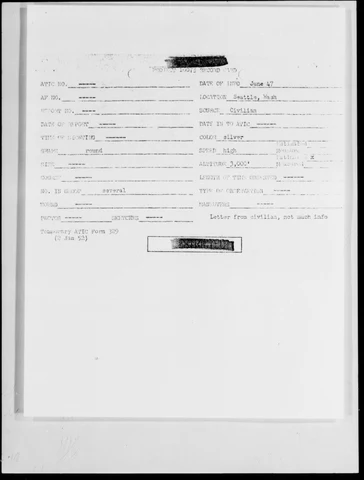 ATIC NO. ---- DATE OF INFO June 47
AF NO. ---- LOCATION Seattle, Wash
REPORT NO. ---- SOURCE Civilian
DATE OF REPORT ---- DATE IN TO ATIC ----
TIME OF SIGHTING ---- COLOR silver
SHAPE round SPEED high
SIZE ---- ALTITUDE 3,000'
COURSE ---- LENGTH OF TIME OBSERVED ----
NO. IN GROUP several TYPE OF OBSERVATION ----
SOUND ---- MANEUVERS ----
PHOTOS ---- SKETCHES ---- Letter from civilian, not much info
Temporary ATIC Form 329
(2 Jan 52)